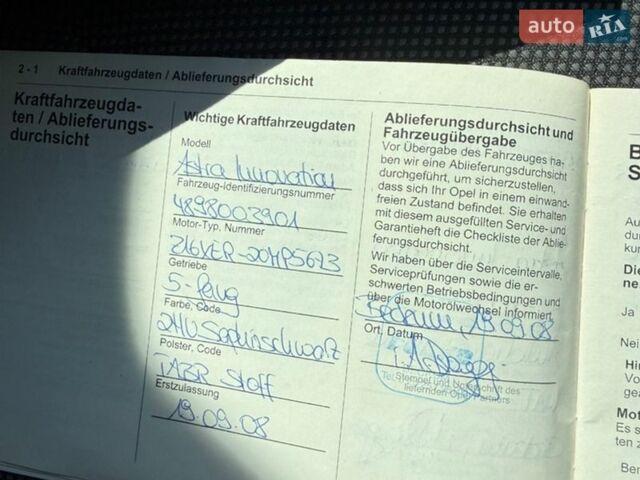 auto RIA
.com
2 - 1 Kraftfahrzeugdaten / Ablieferungsdurchsicht
Kraftfahrzeugda-
ten / Ablieferungs-
durchsicht
Wichtige Kraftfahrzeugdaten
Modell
Astra Innovation
Fahrzeug-Identifizierungsnummer
4898003901
Motor-Typ, Nummer
Z16XER-20MP5613
Getriebe
5-Gang
Farbe, Code
2HU Saphirschwarz
Polster, Code
TABR Stoff
Erstzulassung
19.09.08
Ablieferungsdurchsicht und
Fahrzeugübergabe
Vor Übergabe des Fahrzeuges ha-
ben wir eine Ablieferungsdurchsicht
durchgeführt, um sicherzustellen,
dass sich Ihr Opel in einem einwand-
freien Zustand befindet. Sie erhalten
mit diesem ausgefüllten Service- und
Garantieheft die Checkliste der Ablie-
ferungsdurchsicht.
Wir haben über die Serviceintervalle,
Serviceprüfungen sowie die er-
schwerten Betriebsbedingungen und
über die Motorölwechsel informiert.
19.09.08
Ort, Datum
Stempel und Unterschrift des
liefernden Opel Partners
Au
du
kun
Die
ne
Ja
Nei
Hin
Vo
gea
Mot
Es s
ten z
Ben